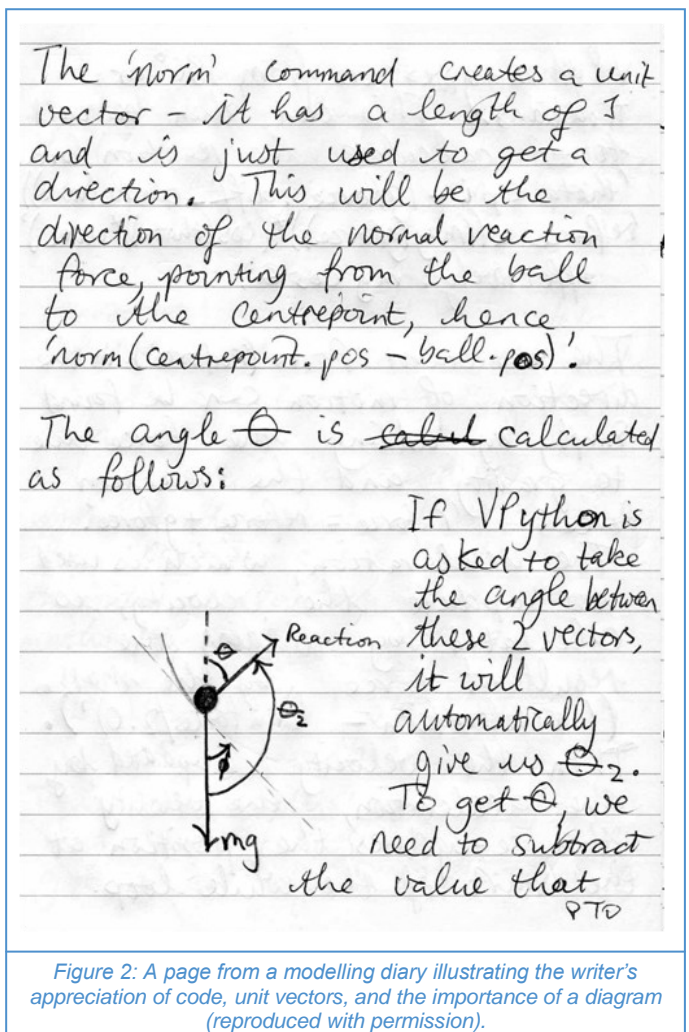 The 'norm' command creates a unit
vector - it has a length of 1
and is just used to get a
direction. This will be the
direction of the normal reaction
force, pointing from the ball
to the centrepoint, hence
'norm(centrepoint.pos - ball.pos)'.
The angle θ is calculated
as follows:
If VPython is
asked to take
the angle between
these 2 vectors,
it will
automatically
give us θ₂.
To get θ, we
need to subtract
the value that
PTO
Reaction
θ
θ₂
ϕ
mg
Figure 2: A page from a modelling diary illustrating the writer's
appreciation of code, unit vectors, and the importance of a diagram
(reproduced with permission).